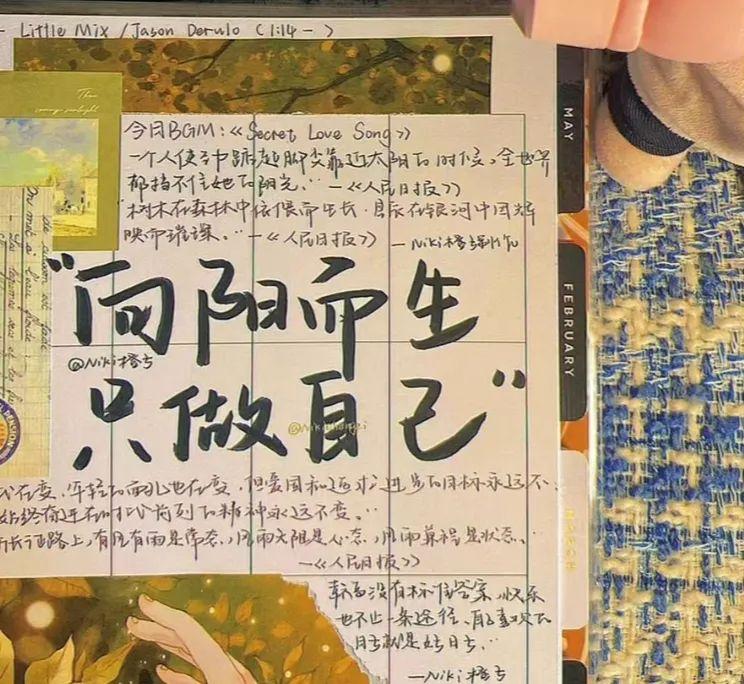 - Little Mix / Jason Derulo (1:14 - )
今日BGM:《Secret Love Song》
一个人使劲踮起脚尖靠近太阳的时候,全世界
都挡不住她的阳光。” —《人民日报》
“树木在森林中依偎而生长,星辰在银河中因辉
映而璀璨。” —《人民日报》
—Niki橙
“向阳而生
@Niki橙
只做自己”
在变,年轻的面孔也在变,但爱国和追求进步的目标永远不
始终奋进在时代前列的精神永远不变。”
长征路上,有风有雨是常态,风雨无阻是心态,风雨兼程是状态。”
—《人民日报》
幸福没有标准答案,快乐
也不止一条途径,
日子就是好日子。”
—Niki橙
MAY
FEBRUARY
MARCH